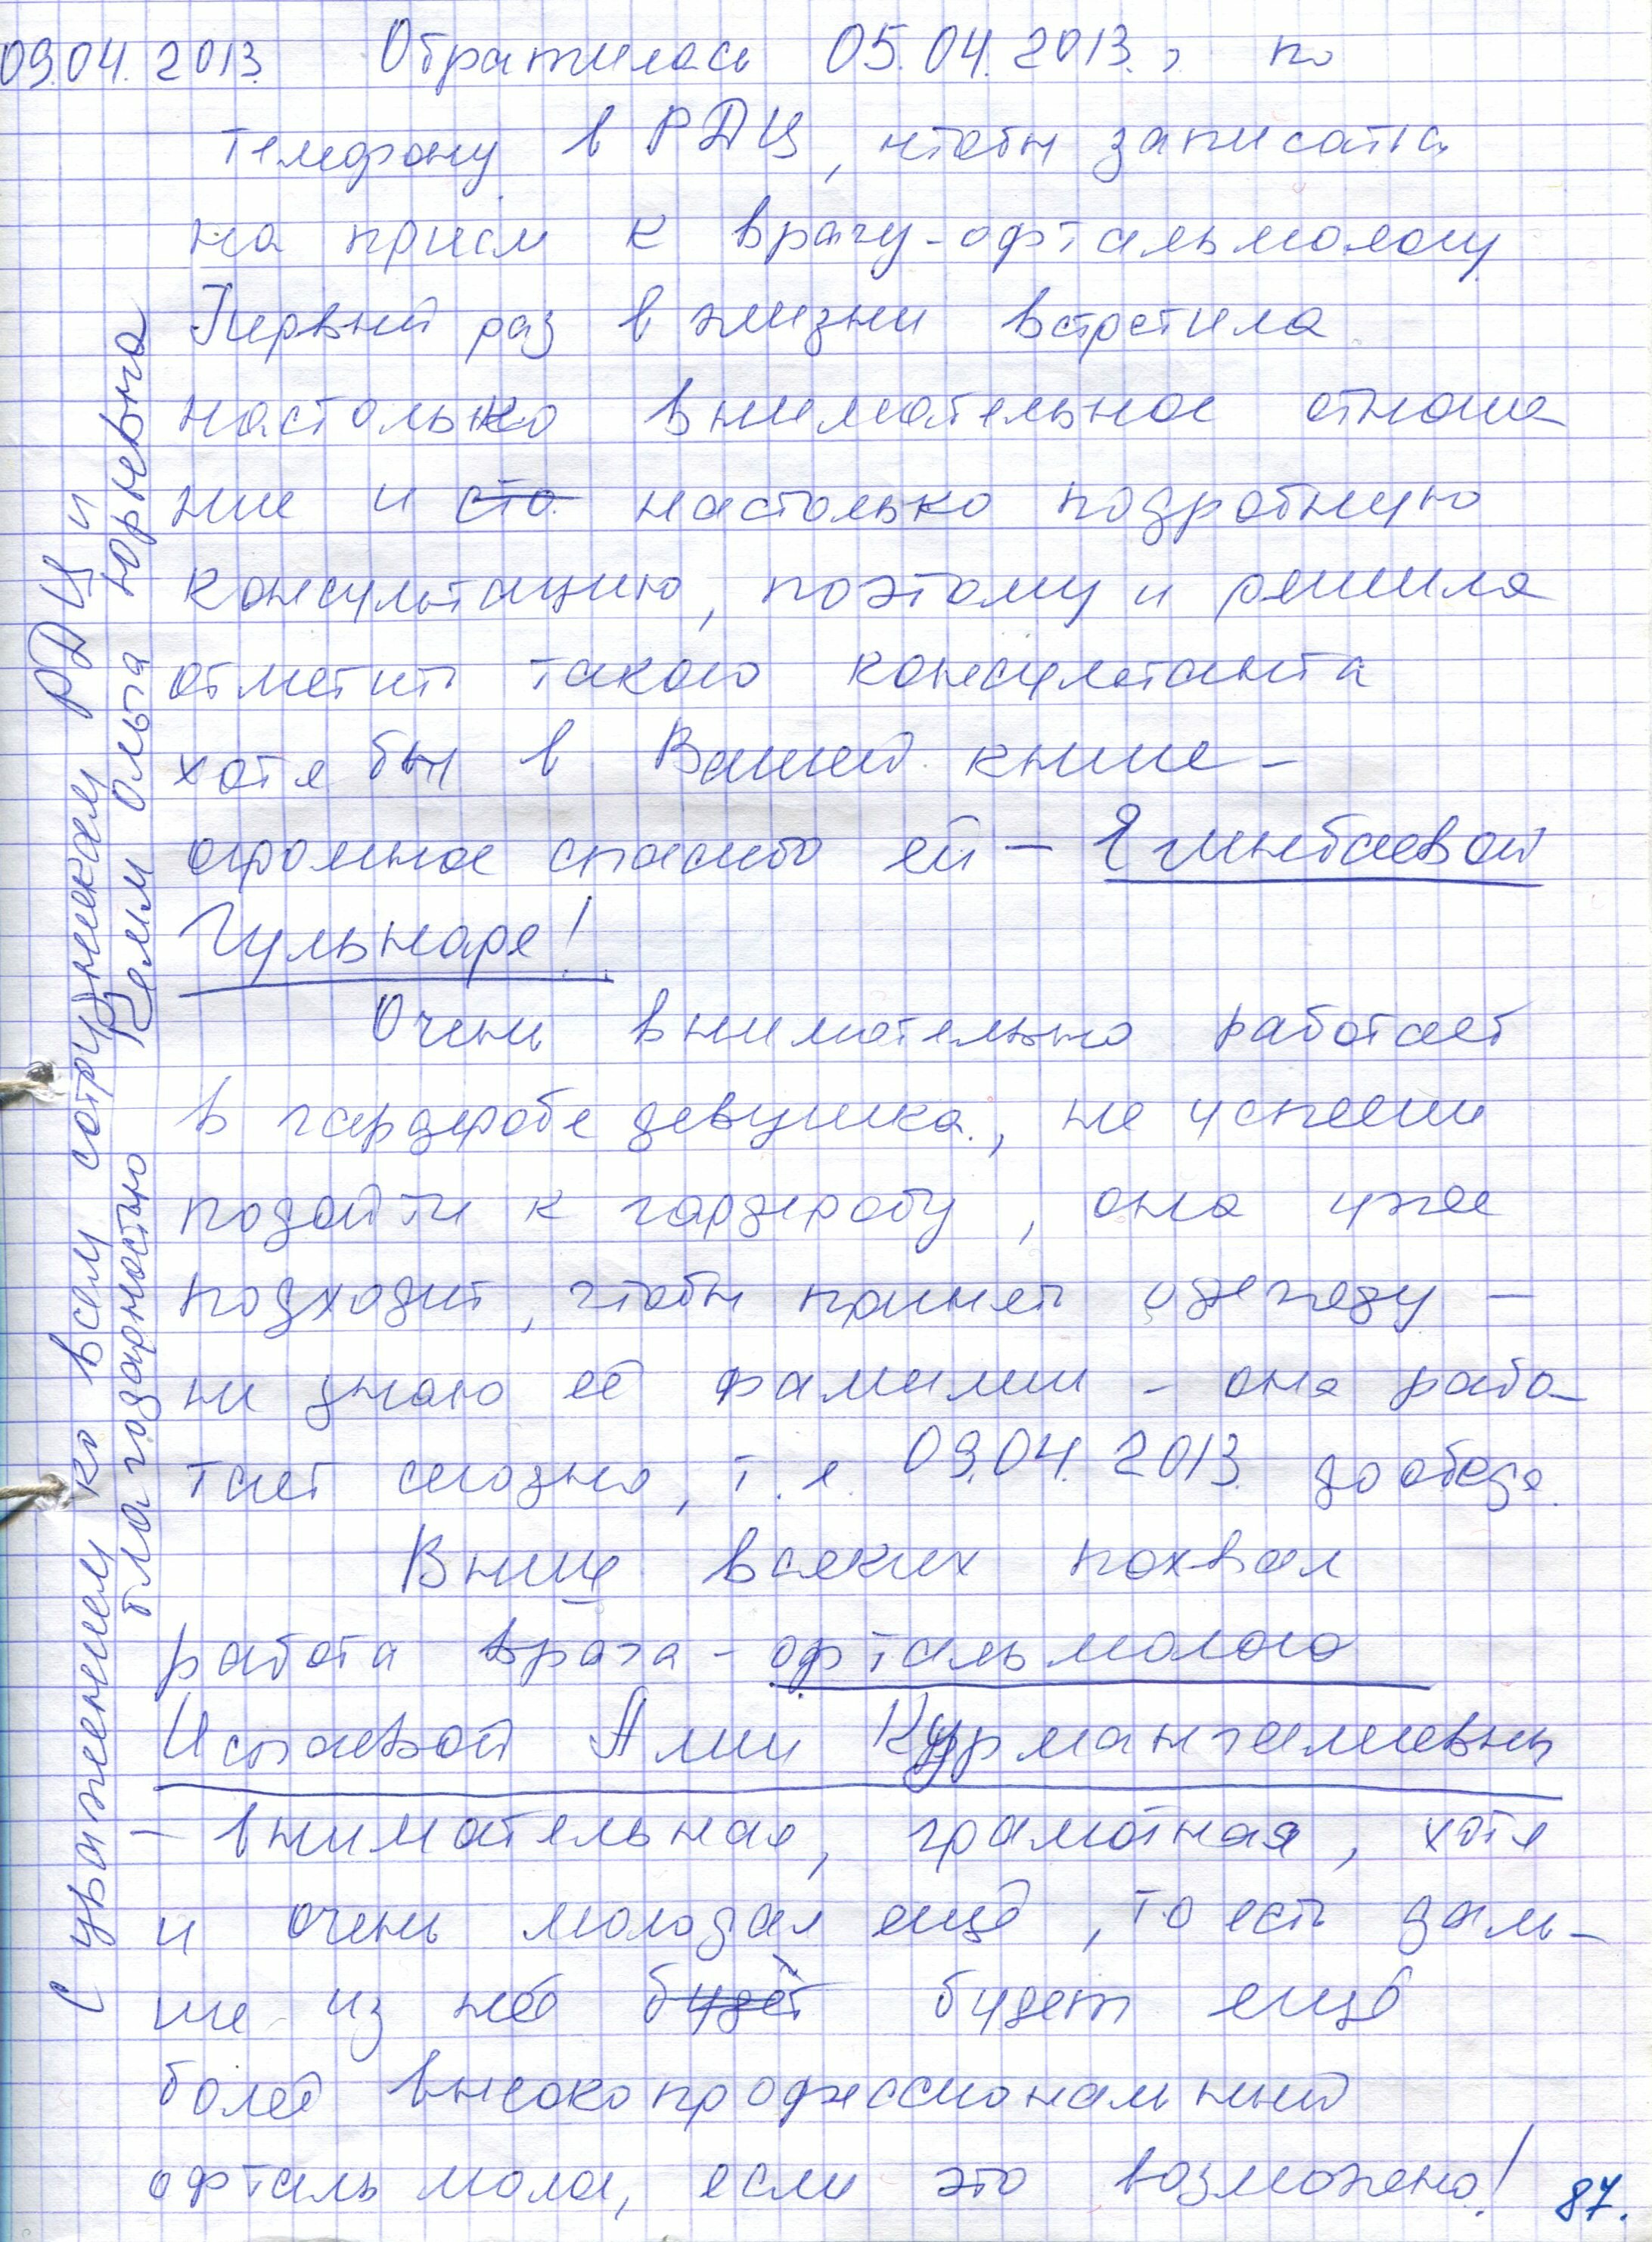 09.04.2013. Обратилась 05.04.2013., по
телефону в РДЦ, чтобы записаться
на прием к врачу-офтальмологу
Первый раз в жизни встретила
настолько внимательное отноше
ние и сто настолько подробную
консультацию, поэтому и решила
отметить такого консультанта
хотя бы в Вашей книге -
огромное спасибо ей —
Гульнаре!
Очень внимательно работает
в гардеробе девушка, не успеешь
подойти к гардеробу, она уже
подходит, чтобы принять одежду —
не знаю её фамилии - она рабо-
тает сегодня, т.е. 09.04.2013. до обеда.
Выше всяких похвал
работа врача - офтальмолога
Испаевой Алии Курмангалиевны
- внимательная, грамотная, хотя
и очень молодая ещё, то есть даль-
ше из неё будет будет ещё
более высокопрофессиональный
офтальмолог, если это возможно!
87.
С уважением ко всем сотрудникам РДЦ и
благодарностью Ольга Юрьевна